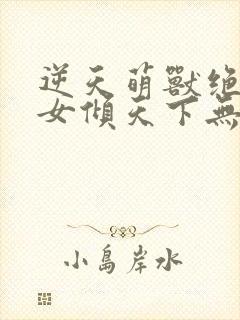 逆天萌獸绝
女傾天下無
小島岸水